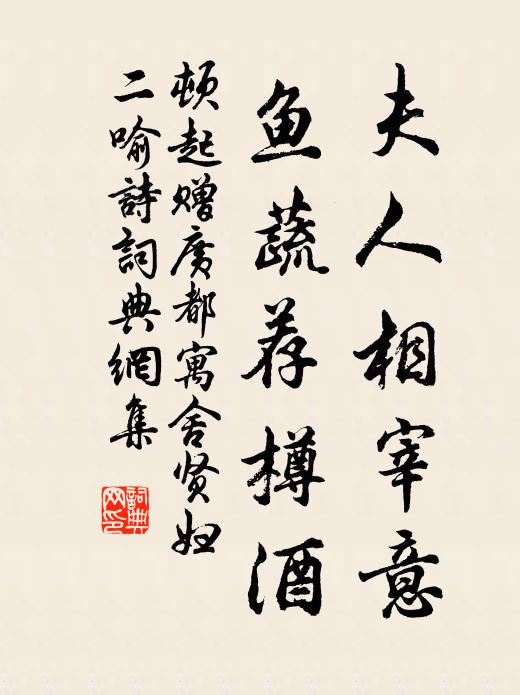 夫人相宰意
鱼蔬荐樽酒
顿起赠广都寓舍贤妞
二喻詩詞典網集
詞典
网印